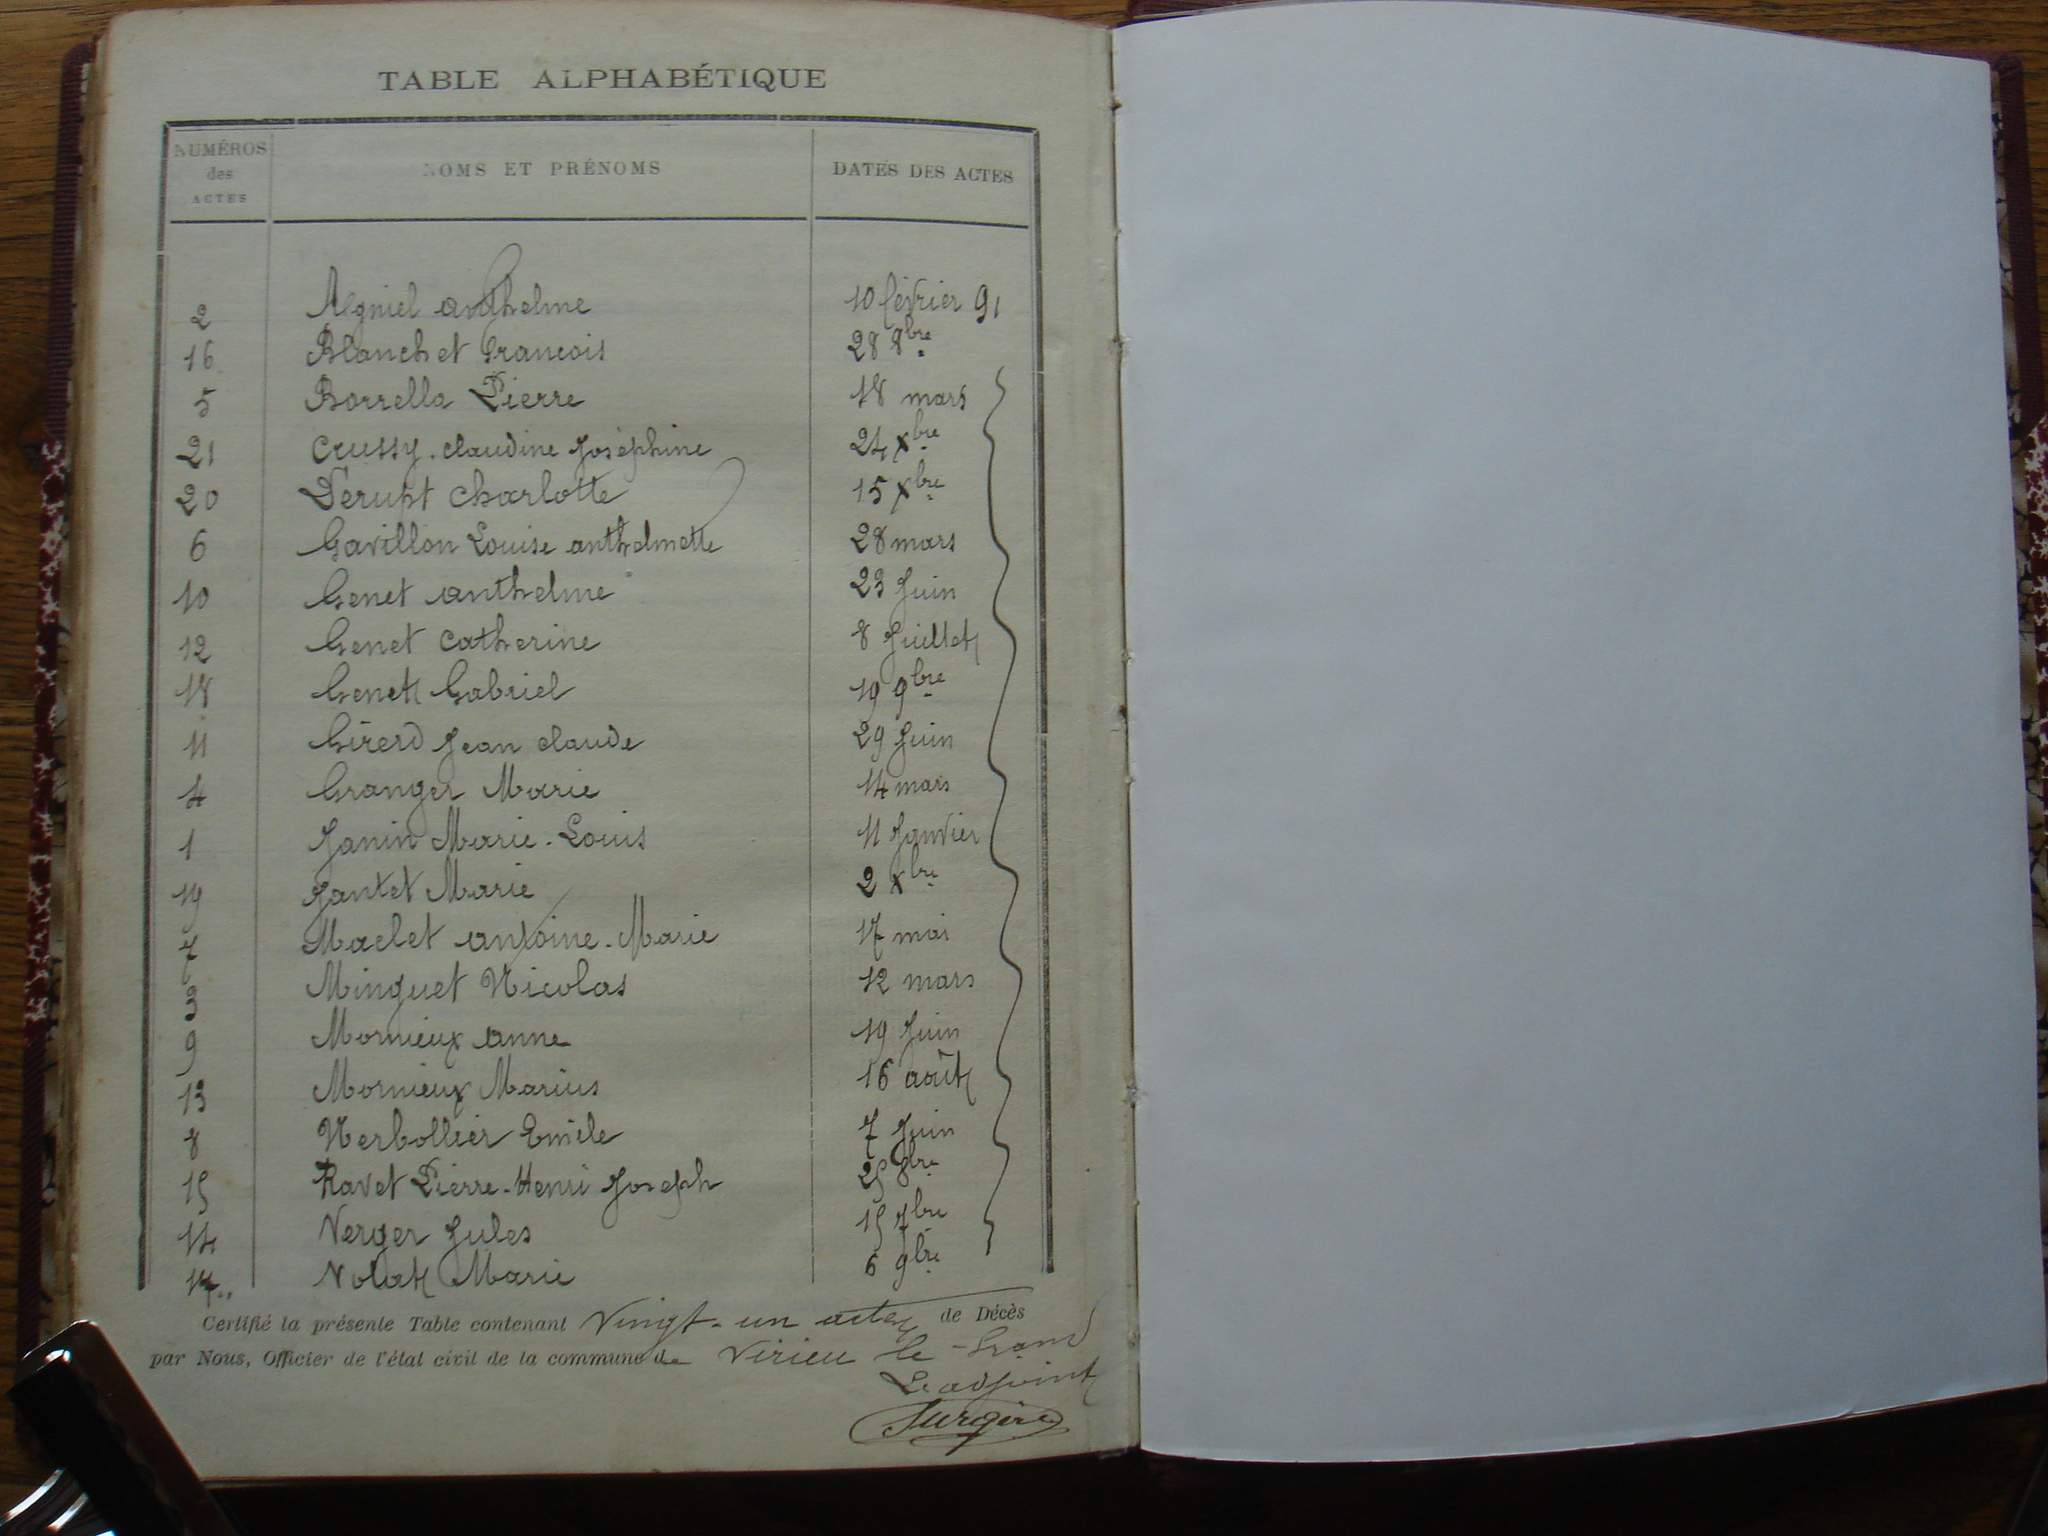 TABLE ALPHABÉTIQUE
NUMÉROS des ACTES NOMS ET PRÉNOMS DATES DES ACTES
2 Algniel anthelme 10 février 91
16 Blanchet François 28 8bre
5 Borrella Pierre 18 mars
21 Crussy claudine Joséphine 24 Xbre
20 Derupt Charlotte 15 Xbre
6 Gavillon Louise anthelmette 28 mars
10 Genet anthelme 23 Juin
12 Genet Catherine 8 Juillet
18 Genet Gabriel 19 9bre
11 Girerd Jean claude 29 Juin
4 Granger Marie 14 mars
1 Janin Marie-Louis 11 Janvier
19 Jantet Marie 2 Xbre
7 Maclet antoine-Marie 17 mai
3 Minguet Nicolas 12 mars
9 Mornieux anne 19 Juin
13 Mornieux Marius 16 août
8 Nerbollier Emile 7 Juin
15 Ravet Pierre-Henri Joseph 25 8bre
14 Verger Jules 15 7bre
17 Volat Marie 6 9bre
Certifié la présente Table contenant Vingt-un actes de Décès
par Nous, Officier de l'état civil de la commune de Virieu le-Grand
L'adjoint